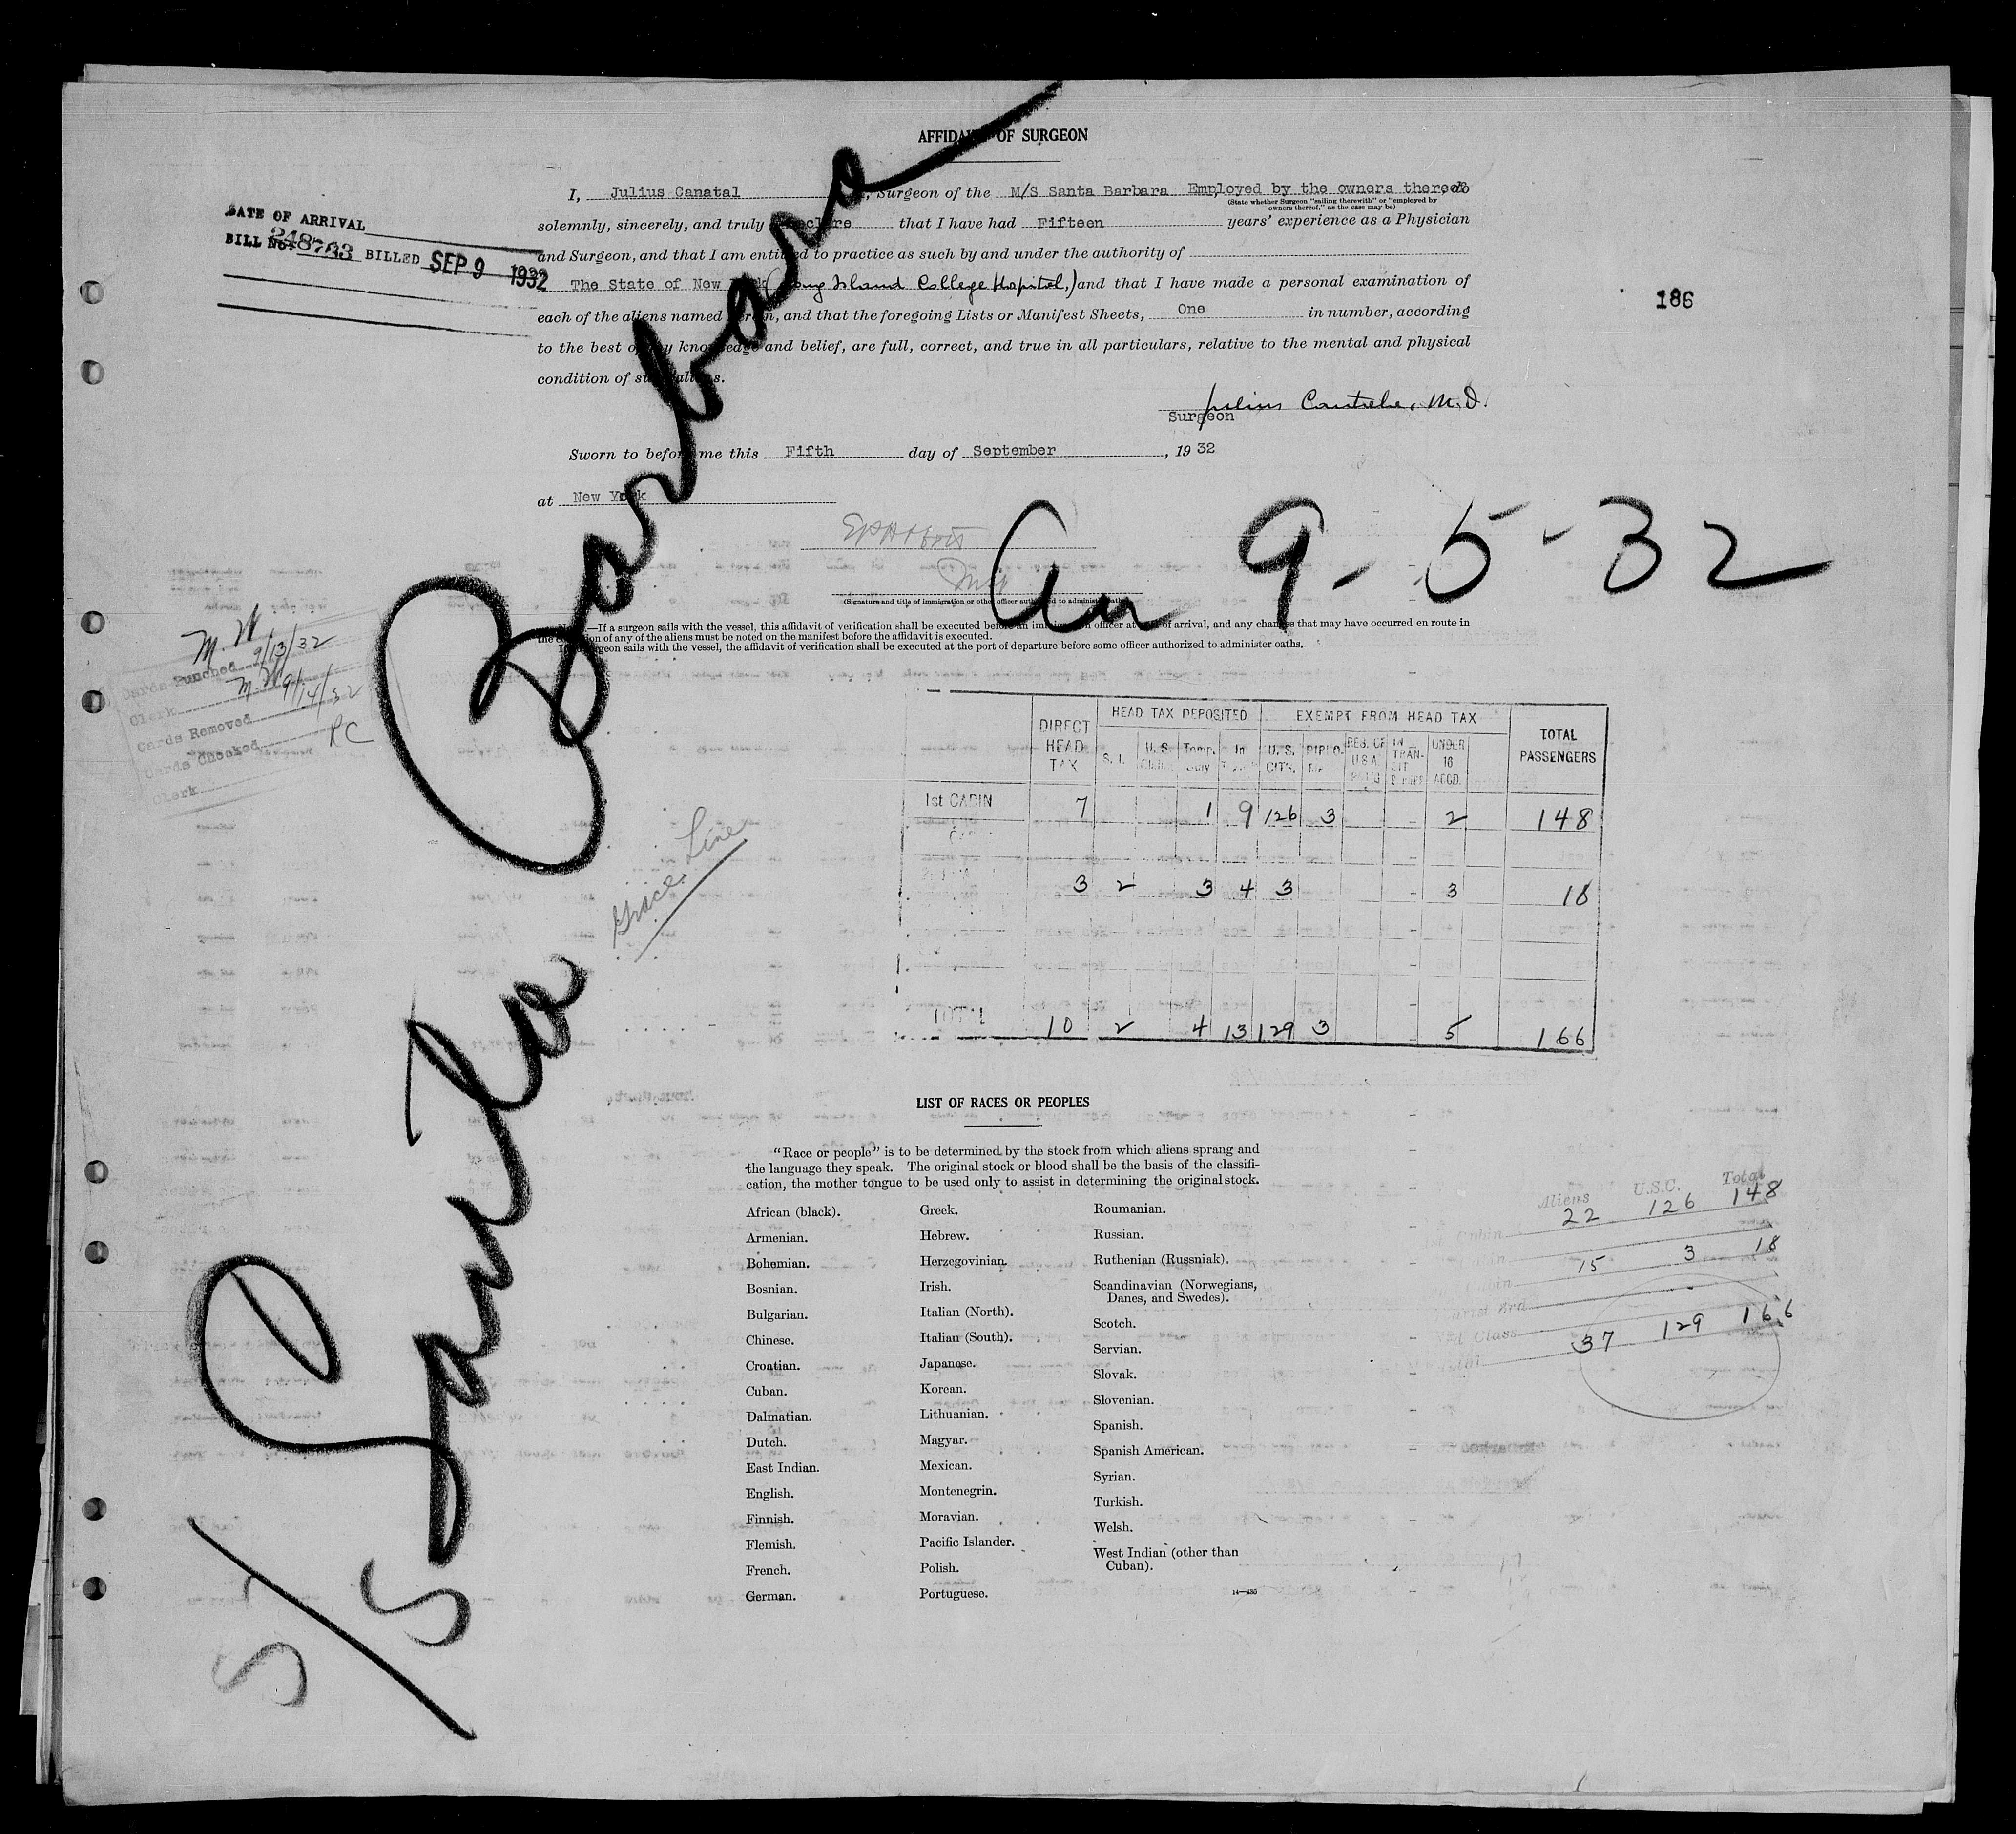 AFFIDAVIT OF SURGEON
I, Julius Canatal, Surgeon of the M/S Santa Barbara Employed by the owners thereof, do
(State whether Surgeon "sailing therewith" or "employed by
owners thereof," as the case may be)
solemnly, sincerely, and truly declare that I have had Fifteen years' experience as a Physician
and Surgeon, and that I am entitled to practice as such by and under the authority of
The State of New York (Long Island College Hospital,) and that I have made a personal examination of
each of the aliens named herein, and that the foregoing Lists or Manifest Sheets, One in number, according
to the best of my knowledge and belief, are full, correct, and true in all particulars, relative to the mental and physical
condition of said aliens.
DATE OF ARRIVAL
BILL No. 248763 BILLED SEP 9 1932
186
Julius M.D.
Surgeon
Sworn to before me this Fifth day of September, 1932
at New York
(Signature and title of immigration or other officer authorized to administer oaths)
Arr 9-5-32
Note.—If a surgeon sails with the vessel, this affidavit of verification shall be executed before an immigration officer at port of arrival, and any changes that may have occurred en route in
the condition of any of the aliens must be noted on the manifest before the affidavit is executed.
If no surgeon sails with the vessel, the affidavit of verification shall be executed at the port of departure before some officer authorized to administer oaths.
M. W.
Cards Punched 9/13/32
Clerk M. W. 9/14/32
Cards Removed
Cards Checked RC
Clerk
S/S Santa Barbara
Grace Line
DIRECT HEAD TAX HEAD TAX DEPOSITED EXEMPT FROM HEAD TAX TOTAL PASSENGERS
S. I. U. S. Temp. Stay In U. S. CIT'S. DIPLO. RES. OF U.S.A. IN TRANSIT UNDER 16 ACCD.
1st CABIN 7 1 9 126 3 2 148
3 2 3 4 3 3 18
TOTAL 10 2 4 13 129 3 5 166
LIST OF RACES OR PEOPLES
"Race or people" is to be determined by the stock from which aliens sprang and
the language they speak. The original stock or blood shall be the basis of the classifi-
cation, the mother tongue to be used only to assist in determining the original stock.
African (black).
Armenian.
Bohemian.
Bosnian.
Bulgarian.
Chinese.
Croatian.
Cuban.
Dalmatian.
Dutch.
East Indian.
English.
Finnish.
Flemish.
French.
German.
Greek.
Hebrew.
Herzegovinian.
Irish.
Italian (North).
Italian (South).
Japanese.
Korean.
Lithuanian.
Magyar.
Mexican.
Montenegrin.
Moravian.
Pacific Islander.
Polish.
Portuguese.
Roumanian.
Russian.
Ruthenian (Russniak).
Scandinavian (Norwegians,
Danes, and Swedes).
Scotch.
Servian.
Slovak.
Slovenian.
Spanish.
Spanish American.
Syrian.
Turkish.
Welsh.
West Indian (other than
Cuban).
14—430
Aliens U.S.C. Total
Cabin 22 126 148
15 3 18
Class
37 129 166